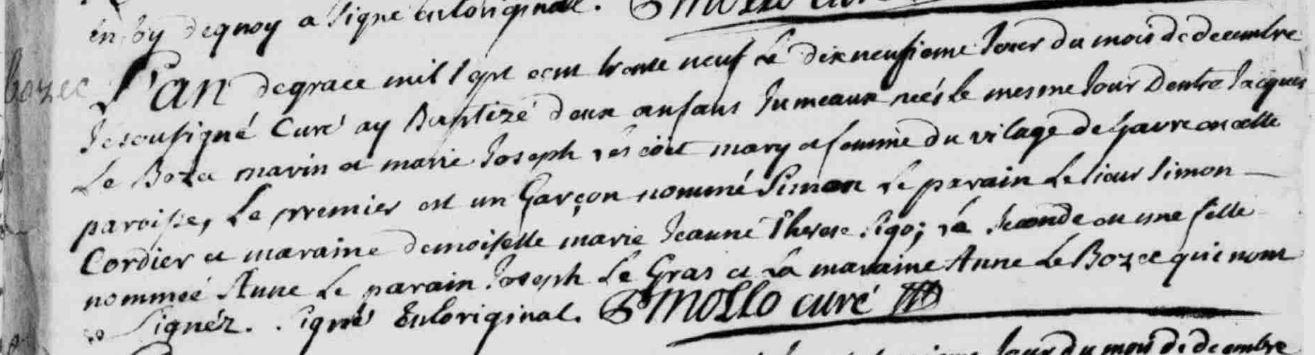 en foy dequoy a signé en loriginal. P mollo curé
bozec
L'an degrace mil sept cent trente neuf Le dix neufieme Jour du mois de decembre
Je sousigné Curé ay Baptizé deux anfans Jumeaux neés le mesme Jour Dentre Jacques
Le Bozec marin et marie Joseph mary et femme du vilage de Gavre en cette
paroisse, Le premier est un Garçon nommé Simon Le parain Le sieur Simon
Cordier et maraine demoiselle marie Jeanne Therese ; La seconde est une fille
nommeé Anne Le parain Joseph Le Gras et La maraine Anne Le Bozec qui nont
Signéz. Signé En loriginal. P mollo curé
Jour du mois de decembre